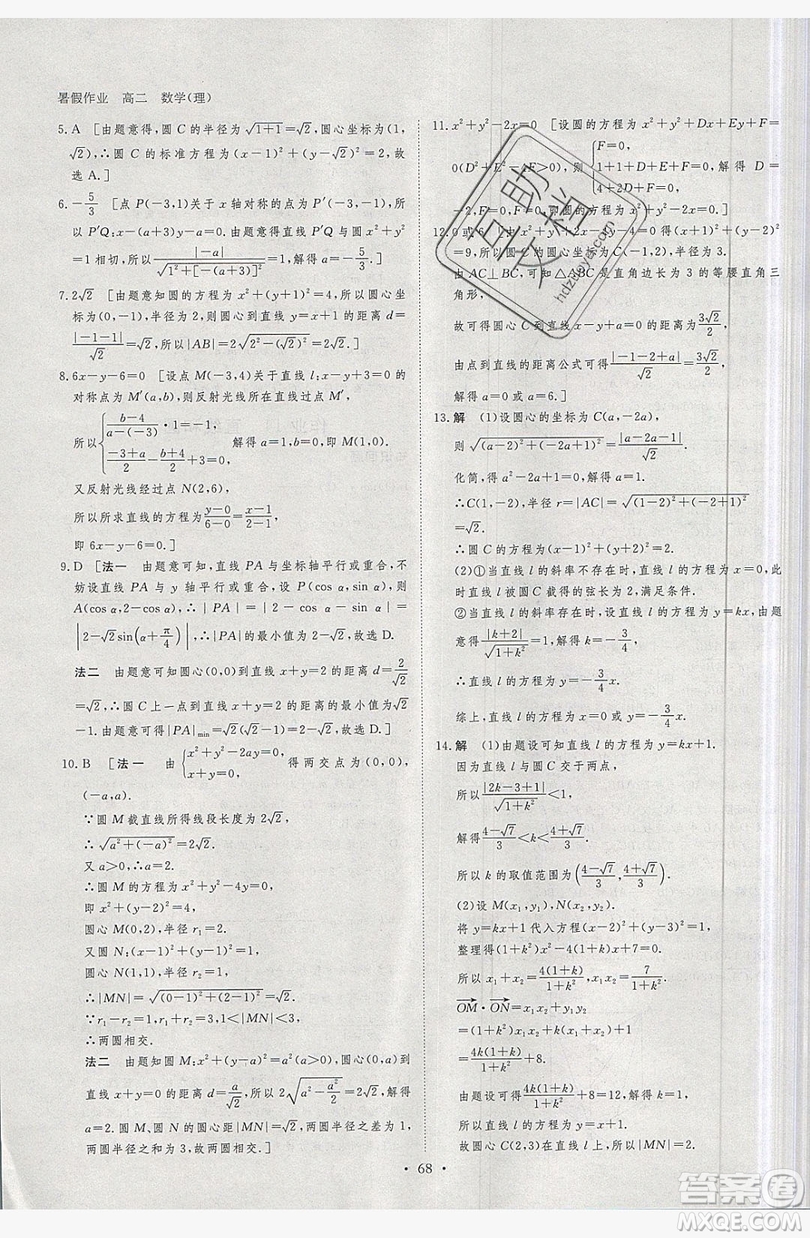 暑假作业 高二 数学(理)
5. A [由题意得,圆 C 的半径为√(1+1)=√2,圆心坐标为(1,
√2),∴圆 C 的标准方程为(x-1)²+(y-√2)²=2,故
选 A.]
6. -5/3 [点 P(-3,1)关于 x 轴对称的点为 P′(-3,-1),
所以 P′Q:x-(a+3)y-a=0,由题意得直线 P′Q 与圆 x²+y²=
1 相切,所以|-a|/√(1²+[-(a+3)]²)=1,解得 a=-5/3.]
7. 2√2 [由题意知圆的方程为 x²+(y+1)²=4,所以圆心坐标
为(0,-1),半径为 2,则圆心到直线 y=x+1 的距离 d=
|-1-1|/√2=√2,所以|AB|=2√(2²-(√2)²)=2√2.]
8. 6x-y-6=0 [设点 M(-3,4)关于直线 l:x-y+3=0
的对称点为 M′(a,b),则反射光线所在直线过点 M′,
所以{(b-4)/(a-(-3))·1=-1, (-3+a)/2-(b+4)/2+3=0. 解得 a=1,b=0,即 M′(1,0).
又反射光线经过点 N(2,6),
所以所求直线的方程为(y-0)/(6-0)=(x-1)/(2-1),
即 6x-y-6=0.]
9. D [法一 由题意可知,直线 PA 与坐标轴平行或重合,不
妨设直线 PA 与 y 轴平行或重合,设 C(cos α,sin α),则
A(cos α,2-cos α),∴|PA|=|2-cos α-sin α|=
|2-√2sin(α+π/4)|,∴|PA|的最小值为 2-√2,故选 D.
法二 由题意可知圆心(0,0)到直线 x+y=2 的距离 d=2/√2
=√2,∴圆 C 上一点到直线 x+y=2 的距离的最小值为√2
-1.由题意可得|PA|min=√2(√2-1)=2-√2,故选 D.]
10. B [法一 由{x²+y²-2ay=0, x+y=0, 得两交点为(0,0),
(-a,a).
∵圆 M 截直线所得线段长度为 2√2,
∴√(a²+(-a)²)=2√2.
又 a>0,∴a=2.
∴圆 M 的方程为 x²+y²-4y=0,
即 x²+(y-2)²=4,
圆心 M(0,2),半径 r₁=2.
又圆 N:(x-1)²+(y-1)²=1,
圆心 N(1,1),半径 r₂=1,
∴|MN|=√((0-1)²+(2-1)²)=√2.
∵r₁-r₂=1,r₁+r₂=3,1<|MN|<3,
∴两圆相交.
法二 由题知圆 M:x²+(y-a)²=a²(a>0),圆心(0,a)到
直线 x+y=0 的距离 d=a/√2,所以 2√(a²-a²/2)=2√2,解得 a
=2.圆 M,圆 N 的圆心距|MN|=√2,两圆半径之差为 1,
两圆半径之和为 3,故两圆相交.]
11. x²+y²-2x=0 [设圆的方程为 x²+y²+Dx+Ey+F=
0(D²+E²-4F>0),则{F=0, 1+1+D+E+F=0, 4+2D+F=0, 解得 D=
-2,E=0,F=0,即圆的方程为 x²+y²-2x=0.]
12. 0或6 [由 x²+y²+2x-4y-4=0 得(x+1)²+(y-2)²
=9,所以圆 C 的圆心坐标为 C(-1,2),半径为 3,
由 AC⊥BC,可知△ABC 是直角边长为 3 的等腰直角三
角形,
故可得圆心 C 到直线 x-y+a=0 的距离为3√2/2,
由点到直线的距离公式可得|-1-2+a|/√2=3√2/2,
解得 a=0 或 a=6.]
13. 解 (1)设圆心的坐标为 C(a,-2a),
则√((a-2)²+(-2a+1)²)=|a-2a-1|/√2.
化简,得 a²-2a+1=0,解得 a=1.
∴C(1,-2),半径 r=|AC|=√((1-2)²+(-2+1)²)
=√2.
∴圆 C 的方程为(x-1)²+(y+2)²=2.
(2)①当直线 l 的斜率不存在时,直线 l 的方程为 x=0,此
时直线 l 被圆 C 截得的弦长为 2,满足条件.
②当直线 l 的斜率存在时,设直线 l 的方程为 y=kx,由题
意得|k+2|/√(1+k²)=1,解得 k=-3/4,
∴直线 l 的方程为 y=-3/4x.
综上,直线 l 的方程为 x=0 或 y=-3/4x.
14. 解 (1)由题设可知直线 l 的方程为 y=kx+1.
因为直线 l 与圆 C 交于两点,
所以|2k-3+1|/√(1+k²)<1,
解得(4-√7)/3<k<(4+√7)/3.
所以 k 的取值范围为((4-√7)/3,(4+√7)/3).
(2)设 M(x₁,y₁),N(x₂,y₂).
将 y=kx+1 代入方程(x-2)²+(y-3)²=1,
整理得(1+k²)x²-4(1+k)x+7=0.
所以 x₁+x₂=4(1+k)/(1+k²),x₁x₂=7/(1+k²).
OM·ON=x₁x₂+y₁y₂
=(1+k²)x₁x₂+k(x₁+x₂)+1
=4k(1+k)/(1+k²)+8.
由题设可得4k(1+k)/(1+k²)+8=12,解得 k=1,
所以直线 l 的方程为 y=x+1.
故圆心 C(2,3)在直线 l 上,所以|MN|=2.
• 68 •
自助文档
hdzuoye.com
答案圈
MXQE.COM